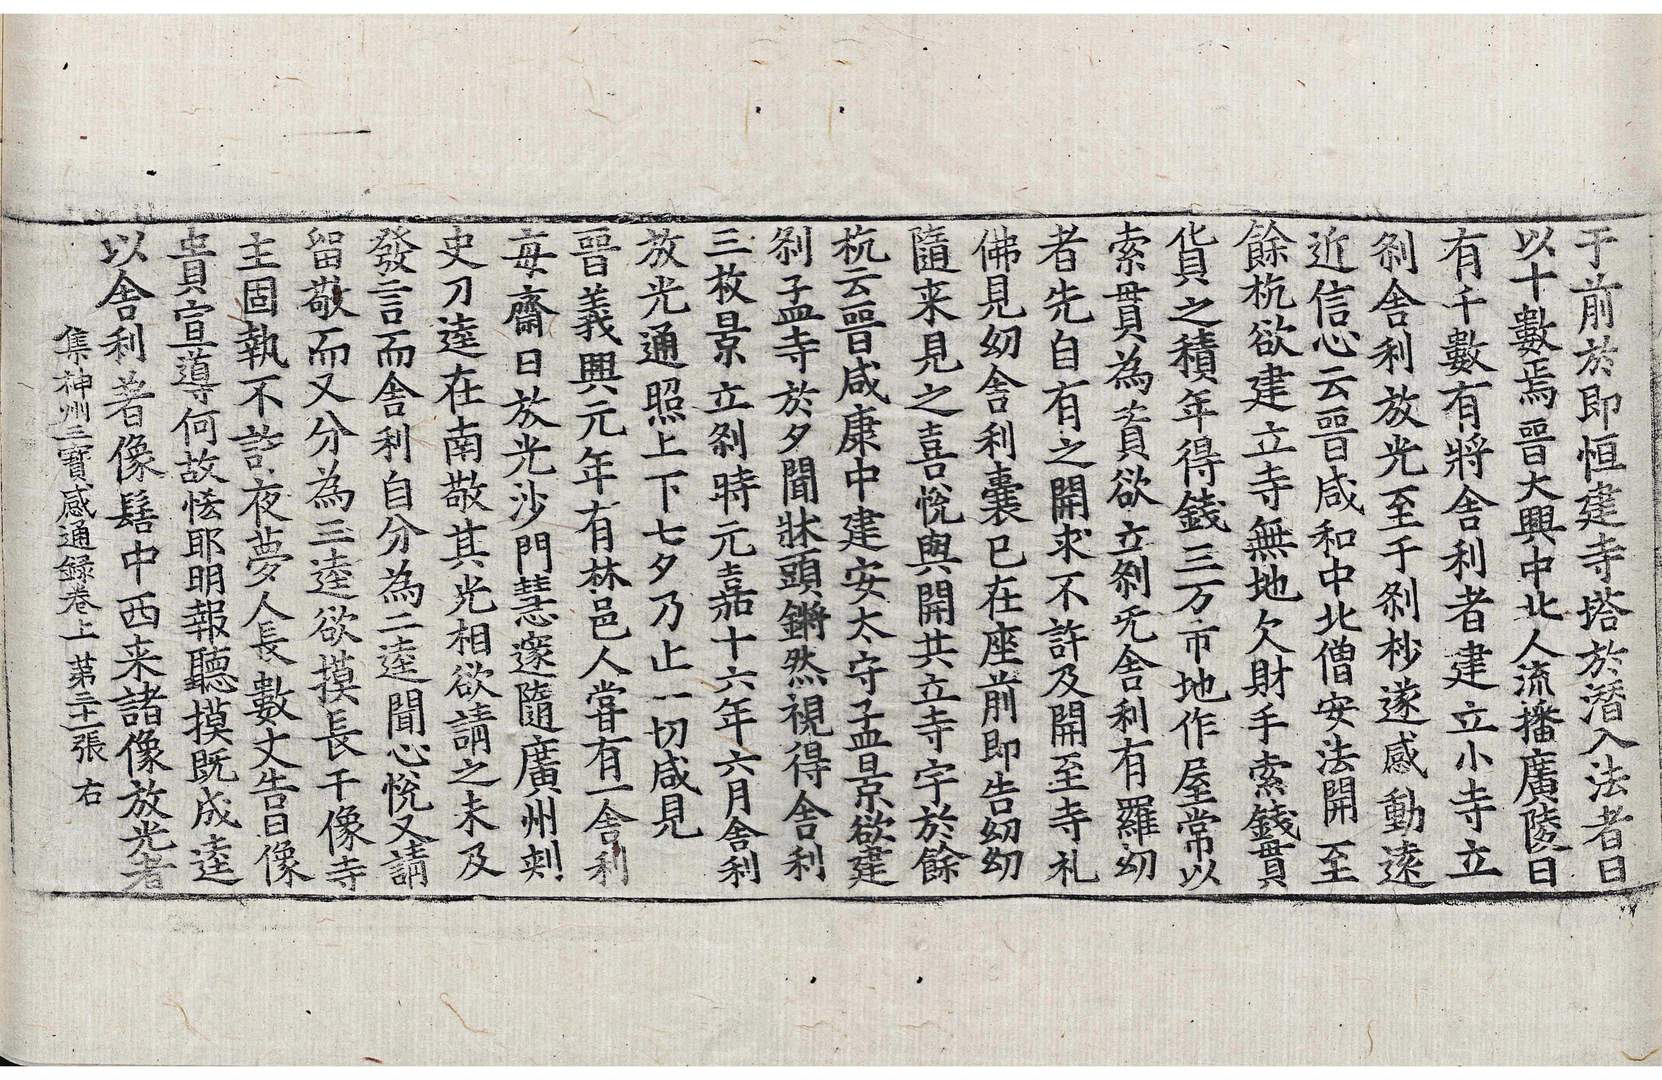 于前於即恒建寺塔於潜入法者日
以十數焉晉大興中北人流播廣陵日
有千數有將舍利者建立小寺立
刹舍利放光至于刹杪遂感動逺
近信心云晉咸和中北僧安法開至
餘杭欲建立寺無地欠財手索錢貫
貨之積年得錢三万市地作屋常以
索貫為資欲立刹旡舍利有羅幼
者先自有之開求不許及開至寺礼
佛見幼舍利囊已在座前即告幼幼
隨来見之喜悅與開共立寺宇於餘
杭云晉咸康中建安太守孟景欲建
刹孟寺於夕聞牀頭鏘然視得舍利
三枚景立刹時元嘉十六年六月舍利
放光通照上下七夕乃止一切咸見
晉義興元年有林邑人甞有一舍利
每齋日放光沙門慧邃隨廣州刺
史刀逵在南敬其光相欲請之未及
發言而舍利自分為二逵聞心悅又請
留敬而又分為三逵欲摸長干像寺
主固執不許夜夢人長數丈告曰像
貴宣導何故恡耶明報聽摸既成逵
以舍利著像髻中西来諸像放光者
集神州三寶感通録卷上 第二十一張 右